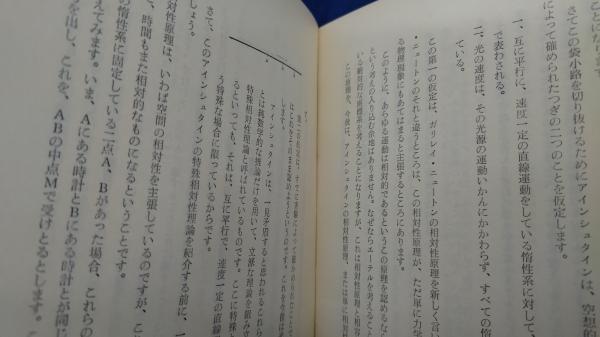 ことになります。
さてこの袋小路を切り抜けるためにアインシュタインは、空想的
によって確められたつぎの二つのことを仮定します。
一、互に平行に、速度一定の直線運動をしている惰性系に対して、
で表わされる。
二、光の速度は、その光源の運動いかんにかかわらず、すべての惰
ている。
この第一の仮定は、ガリレイ・ニュートンの相対性原理を新しく言い
・ニュートンのそれと違うところは、この相対性原理が、ただ単に力学
る物理現象にもあてはまると主張するところにあります。
このように、あらゆる運動は相対的であるというこの原理を認めるなら
という考えの入り込む余地はありません。なぜならエーテルを考えること
いる絶対的な座標系を考えることになりますが、これは相対性原理と相容
この原理を、今後は、アインシュタインの相対性原理、または単に相対性
はこれをそのまま認めようというのです。
します。
アインシュタインは、一見矛盾すると思われるこれら
とは純数学的な推論だけを用いて、立派な理論を組み立
特殊相対性理論と呼ばれているものです。ここに特殊と
るといっても、それは、互に平行で、速度一定の直線
う特殊な場合に限っているからです。
さて、このアインシュタインの特殊相対性理論を紹介する前に、一
しょう。
相対性原理は、いわば空間の相対性を主張しているのですが、これ
、時間もまた相対的なものになるということです。
の惰性系に固定している二点A、Bがあった場合、これらの
えてみます。いま、Aにある時計とBにある時計とが同じ
を出し、これを、ABの中点Mで受けるとします。こ